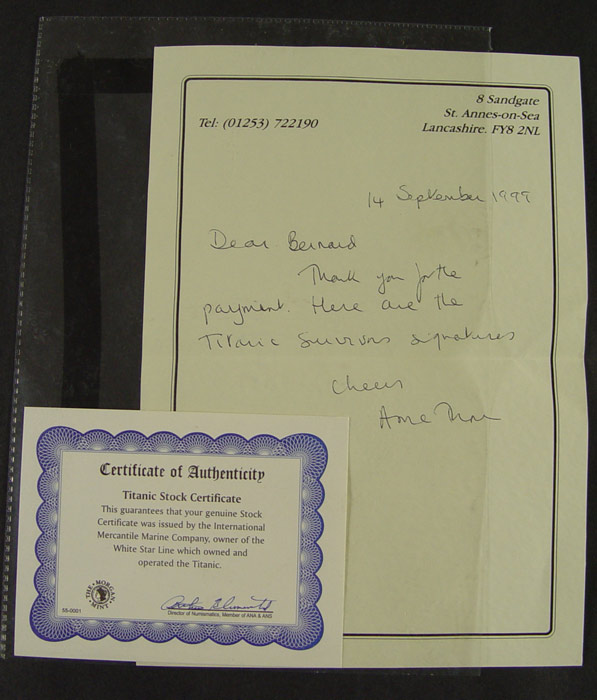 8 Sandgate
St. Annes-on-Sea
Tel: (01253) 722190
Lancashire. FY8 2NL
14 September 1999
Dear Bernard
Thank you for the
payment. Here are the
Titanic Survivors signatures
Cheers
Certificate of Authenticity
Titanic Stock Certificate
This guarantees that your genuine Stock
Certificate was issued by the International
Mercantile Marine Company, owner of the
White Star Line which owned and
operated the Titanic.
THE MORGAN MINT
55-0001
Director of Numismatics, Member of ANA & ANS